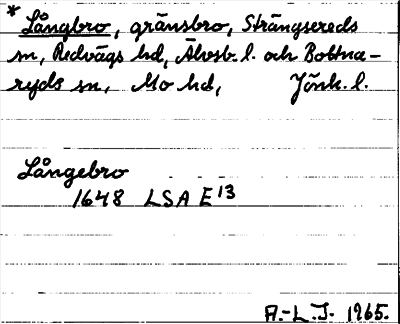 * Långbro, gränsbro, Strängsereds
sn, Redvägs hd, Älvsb. l. och Bottna-
ryds sn, Mo hd, Jönk. l.
Långebro
1648 LSA E13
A.-L.J. 1965.